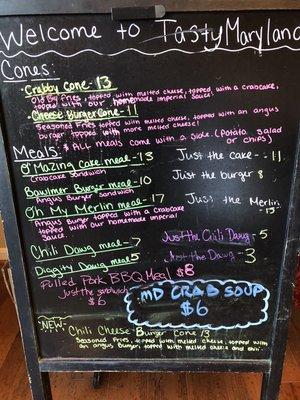 Welcome to TastyMaryland
Cones:
Crabby Cone - 13
Old Bay Fries, topped with melted cheese, topped, with a crabcake,
topped with our homemade imperial Sauce.
Cheese Burger Cone - 11
Seasoned Fries topped with melted cheese, topped with an angus
burger topped with more melted cheese!
Meals: * All meals come with a side. (Potato Salad
or chips)
O'Mazing Cake meal - 13 Just the cake - 11
Crabcake Sandwich
Bawlmer Burger meal - 10 Just the burger 8
Angus Burger Sandwich
Oh My Merlin meal - 17 Just the Merlin
- 15
Angus Burger topped with a Crabcake
topped with our homemade imperial
Sauce.
Chili Dawg meal - 7 Just the Chili Dawg - 5
Diggity Dawg meal 5 Just the Dawg - 3
Pulled Pork BBQ Meal $8
Just the sandwich
$6
MD CRAB SOUP
$6
NEW - Chili Cheese Burger Cone 13
Seasoned Fries, topped with melted cheese, topped with
an angus Burger, topped with melted cheese and chili.